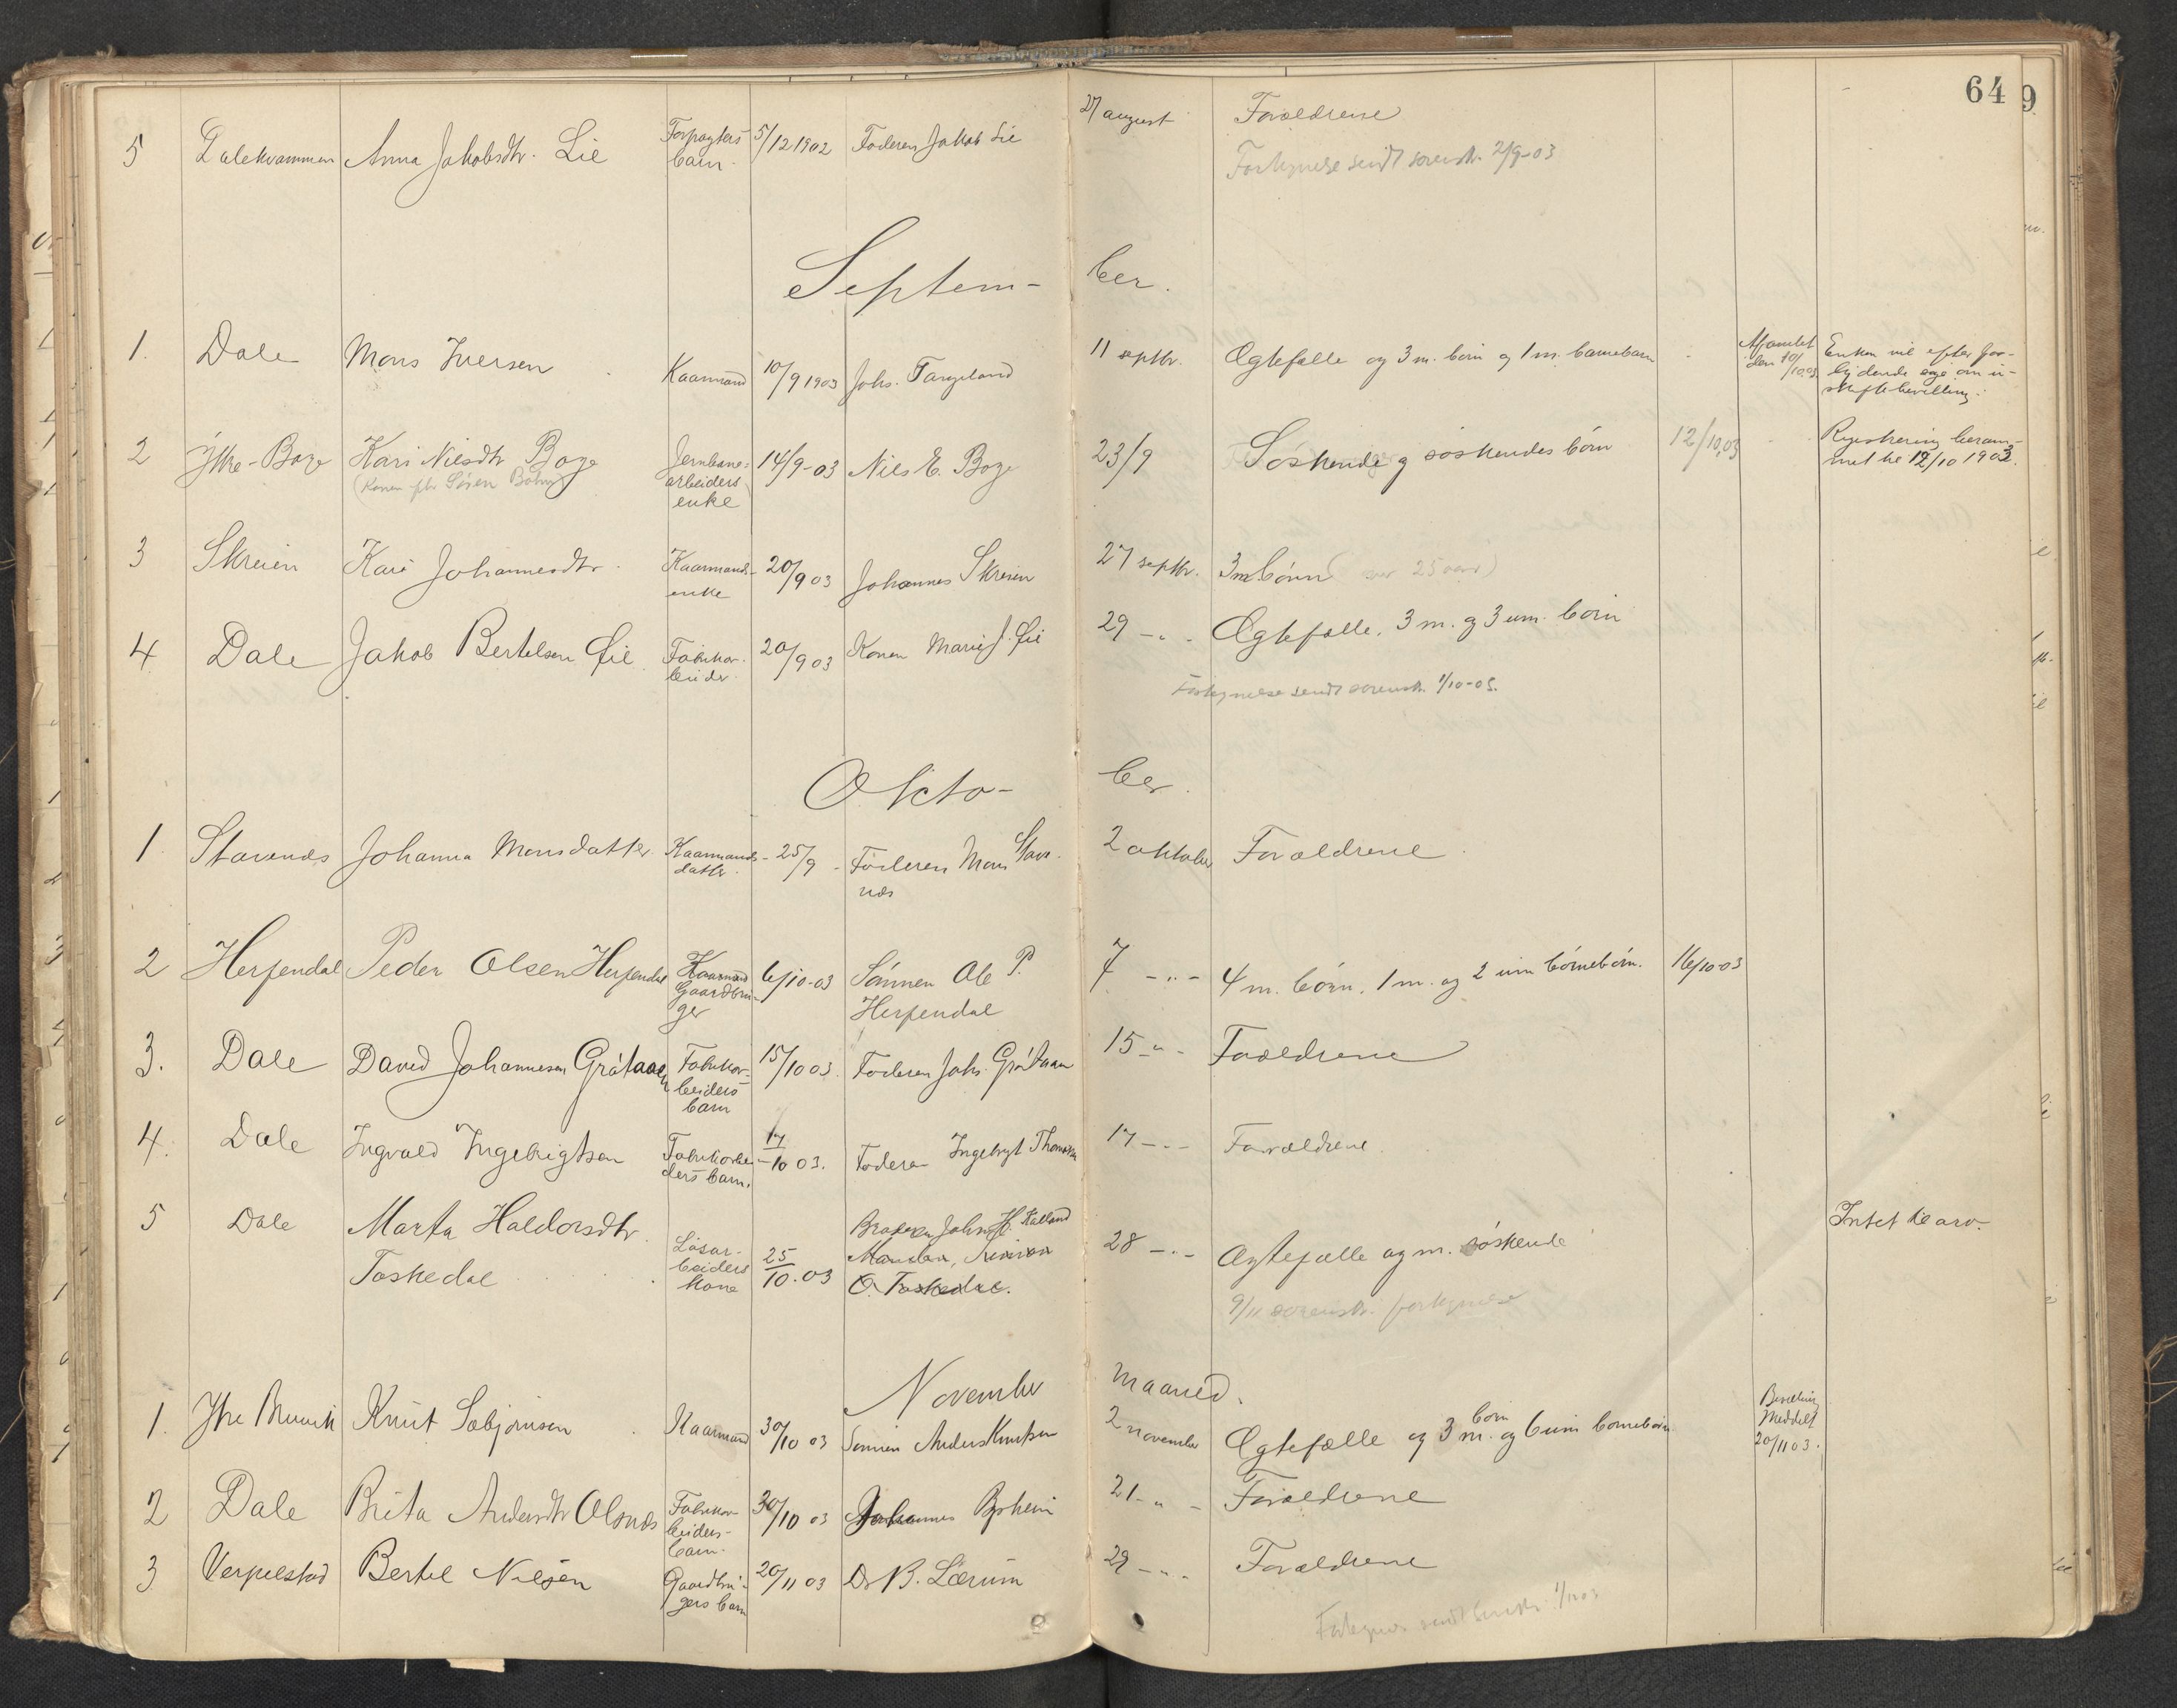 64
9
5 Dalekvammen Anna Jakobsdtr. Lie Forpagters barn. 5/12 1902 Faderen Jakob Lie 27 august Forældrene
Fortegnelse sendt sorenskr. 2/9-03
Septem- ber.
1. Dale Mons Iversen Kaarmand 10/9 1903 Johs. Fargeland 11 septbr. Ægtefælle og 3 m. børn og 1 m. barnebarn Enken vil efter for-
den 10/10.03. lydende søge om u-
skiftebevilling.
2 Ytre-Boge Kari Nilsdtr Boge Jernbane- 14/9-03 Nils E. Boge 23/9 Søskende og søskendes børn 12/10.03 Registrering beram-
arbeiders met til 12/10 1903.
enke
3 Skreien Kari Johannesdtr. Kaarmands- enke 20/9 03 Johannes Skreien 27 septbr. 3 m børn (over 25 aar)
4 Dale Jakob Bertelsen Lie Fabrikar- beider. 20/9 03 Konen Marie J. Lie 29 -"- Ægtefælle, 3 m. og 3 um. børn
Fortegnelse sendt sorenskr. 1/10-03.
Okto- ber.
1 Stavenes Johanna Monsdatter Kaarmands- datter. 25/9 - Faderen Mons Stave- næs 2 oktober Forældrene
2 Herfendal Peder Olsen Herfendal Kaarmand 6/10-03 Sønnen Ole P. 7 -"- 4 m. børn, 1 m. og 2 um børnebørn. 16/10-03
Gaardbru- ger Herfendal
3. Dale David Johannesen Fabrikar- beiders barn 15/10 03. Faderen Johs. 15 -"- Forældrene
4. Dale Ingvald Ingebrigtsen Fabrikarbei- ders barn. 17/10 03. Faderen Ingebrigt Thomassen 17 -"- Forældrene
5 Dale Marta Haldorsdtr. Løsar- beiders kone 25/10.03 Broderen John H. Kalland 28 -"- Ægtefælle og m. søskende Intet til arv.
Toskedal Manden,
O. Toskedal.
9/11 sorenskr. fortegnelse
November maaned.
1. Ytre Knut Sæbjørnsen Kaarmand 30/10 03 Sønnen Anders Knutsen 2 november Ægtefælle og 3 m. børn og 6 um børnebørn Bevilling
Meddelt
20/11 03.
2 Dale Brita Andersdtr Olsnes Fabrikar- beiders- barn. 30/10 03 Johannes 21 -"- Forældrene
3 Verpelstad Bertel Nilsen Gaardbru- gers barn 20/11 03 Dr B. Lærum 29 -"- Forældrene